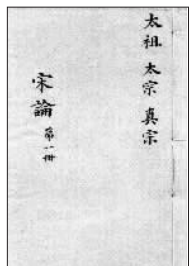 太祖 太宗 真宗
宋論 第一冊